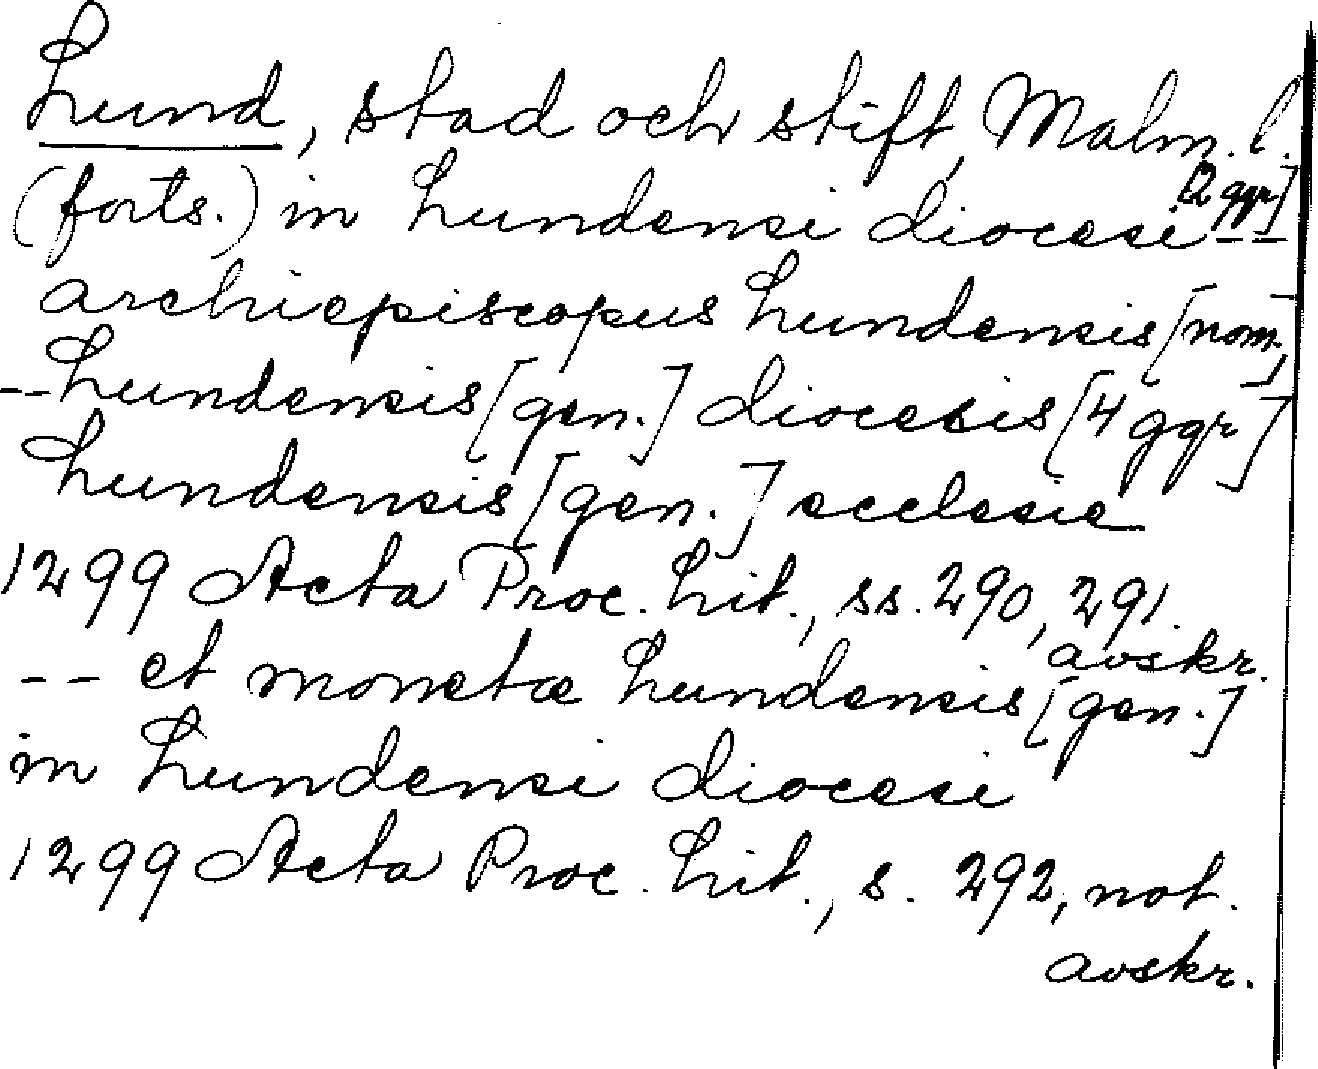 Lund, stad och stift, Malm. l.
(forts.) in Lundensi diocesi [2 ggr] --
archiepiscopus Lundensis [nom.]
-- Lundensis [gen.] diocesis [4 ggr]
Lundensis [gen.] ecclesie
1299 Acta Proc. Lit., ss. 290, 291.
avskr.
-- et monetæ Lundensis [gen.]
in Lundensi diocesi
1299 Acta Proc. Lit., s. 292, not.
avskr.